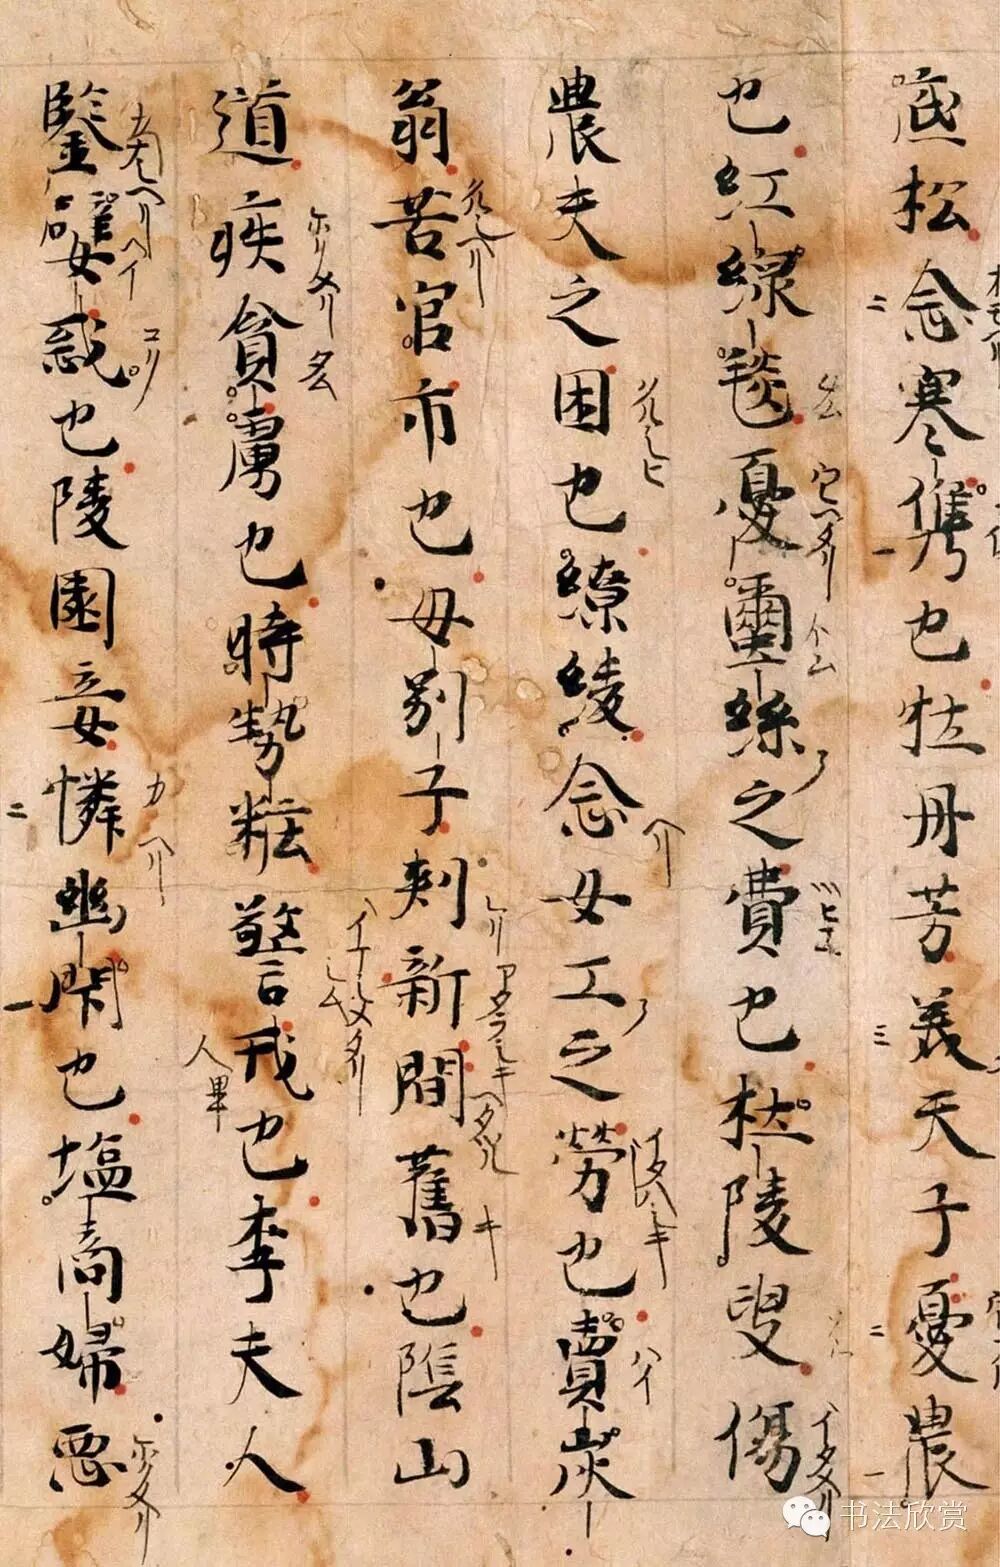 底松念寒儁也牡丹芳美天子憂農
也紅線毯憂蠶絲之費也杜陵叟傷
農夫之困也繚綾念女工之勞也賣炭
翁苦官市也母別子刺新間舊也陰山
道疾貪虜也時勢粧警戒也李夫人
鑒嬖惑也陵園妾憐幽閉也塩商婦惡
书法欣赏